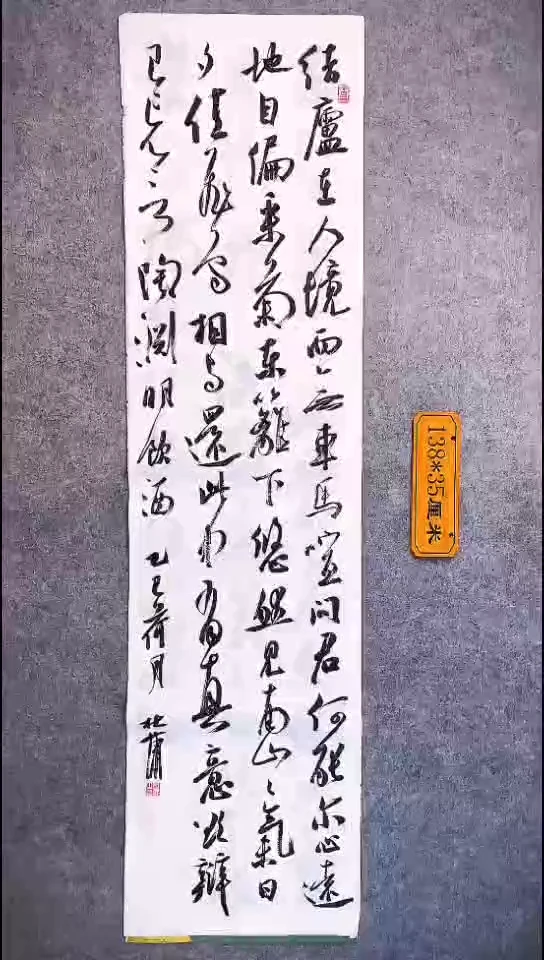 结廬在人境而無車馬喧问君何能尔心遠
地自偏采菊东籬下悠然见南山山氣日
夕佳飛鸟相与還此中有真意欲辯
已忘言陶渊明飲酒乙巳荷月
138*35厘米